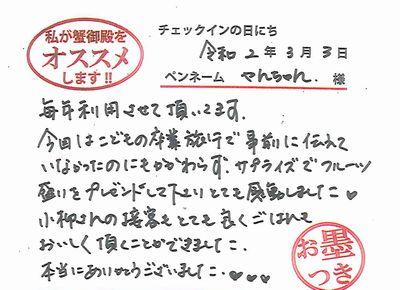 私が蟹御殿を
オススメ
します!!
チェックインの日にち
令和2年3月3日
ペンネーム やんちゃん. 様
毎年利用させて頂いてます.
今回はこどもの卒業旅行で事前に伝えて
いなかったのにもかかわらず、サプライズでフルーツ
盛りをプレゼントして下さりとても感動しました♥
小柳さんの接客もとても良くごはんも
おいしく頂くことができました.
本当にありがとうございました.♥♥♥
お墨
つき